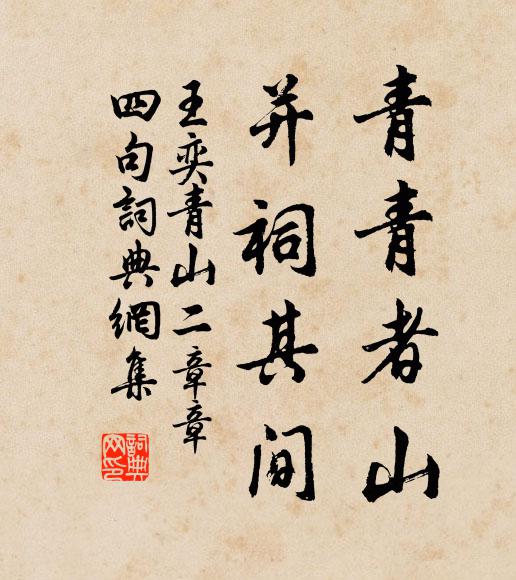 青青者山
并祠其間
王奕青山二章章
四句詞典網集
詞典
网印